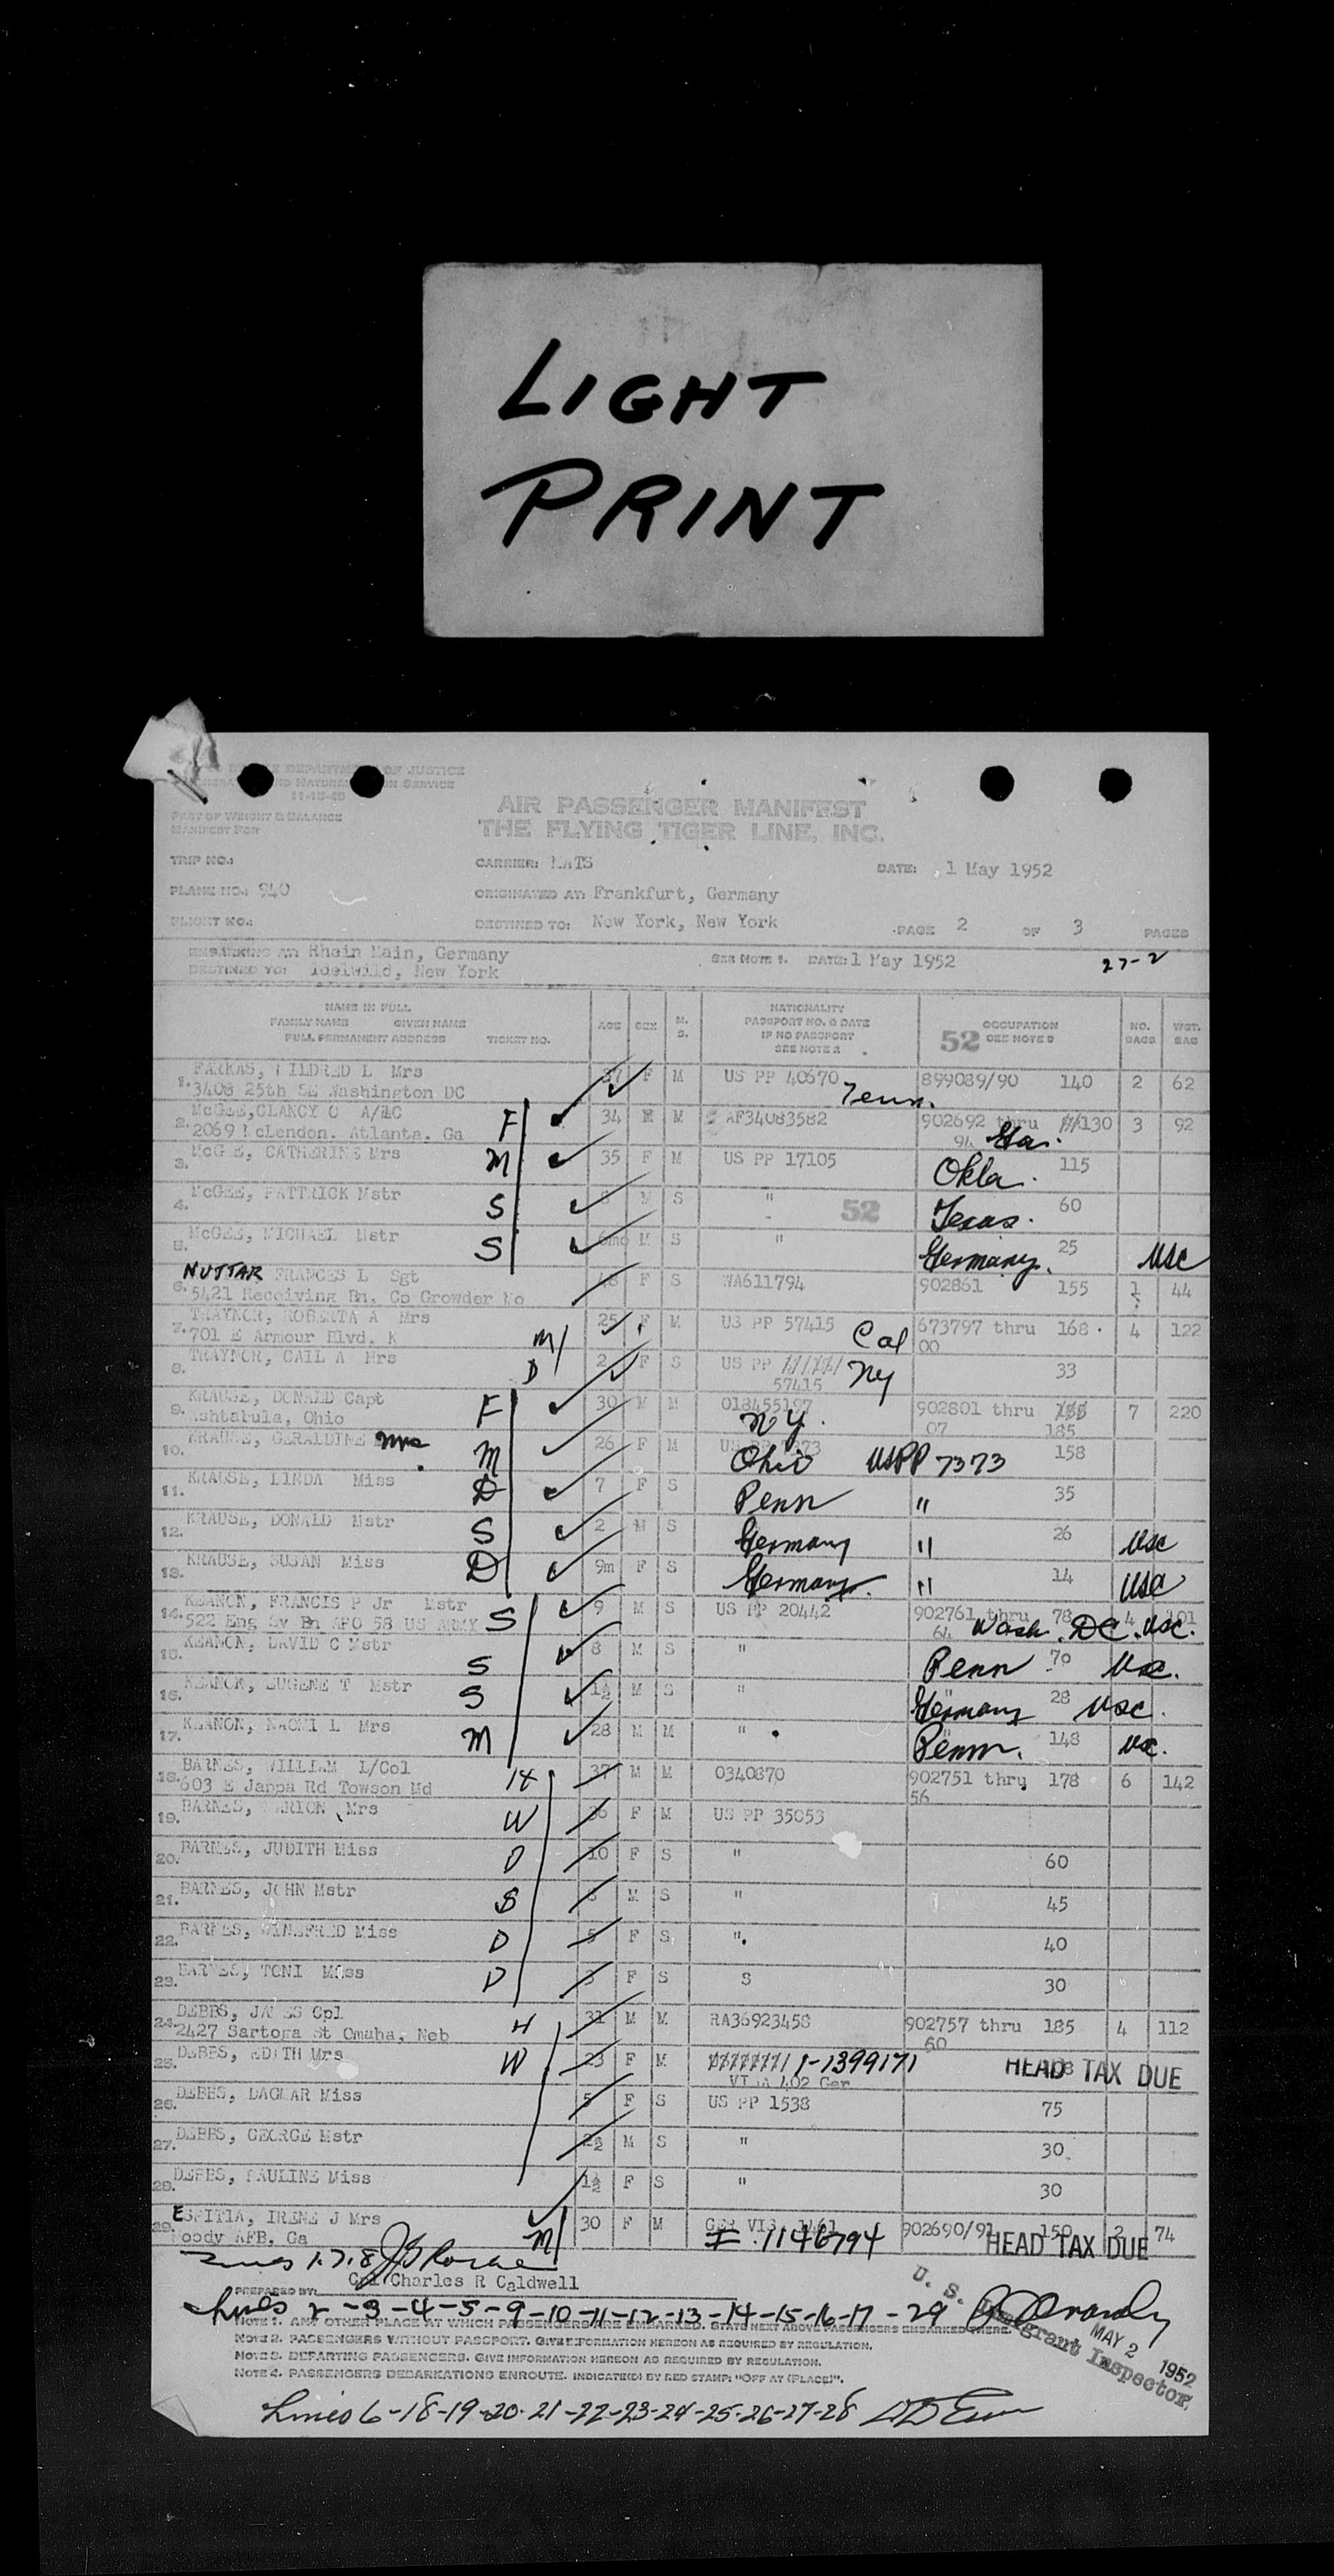 LIGHT
PRINT
DEPARTMENT OF JUSTICE
SERVICE
11-15-48
PART OF WEIGHT & BALANCE
MANIFEST FOR
AIR PASSENGER MANIFEST
THE FLYING TIGER LINE, INC.
TRIP NO.: CARRIER: MATS DATE: 1 May 1952
PLANE NO.: 940 ORIGINATED AT: Frankfurt, Germany
FLIGHT NO.: DESTINED TO: New York, New York PAGE 2 OF 3 PAGES
EMBARKING AT: Rhein Main, Germany SEE NOTE 1. DATE: 1 May 1952 27-2
DESTINED TO: Idelwild, New York
NAME IN FULL
FAMILY NAME GIVEN NAME
FULL PERMANENT ADDRESS TICKET NO. AGE SEX M. S. NATIONALITY PASSPORT NO. & DATE IF NO PASSPORT SEE NOTE 2 52 OCCUPATION SEE NOTE 3 NO. BAGS WGT. BAG
1. FARKAS, MILDRED L Mrs 37 F M US PP 40670 899089/90 140 2 62
3408 25th SE Washington DC Tenn.
2. McGEE, CLANCY O A/1C F 34 M M AF34083582 902692 thru 130 3 92
2069 McLendon. Atlanta. Ga 94 Ga.
3. McGEE, CATHERINE Mrs M 35 F M US PP 17105 Okla. 115
4. McGEE, PATTRICK Mstr S M S " 52 Texas. 60
5. McGEE, MICHAEL Mstr S 6mo M S " Germany. 25 USC
6. NUTTAR FRANCES L Sgt F S WA611794 902861 155 1 44
5421 Receiving Bn. Co Crowder Mo
7. TRAYNOR, ROBERTA A Mrs M 25 F M US PP 57415 Cal 673797 thru 168 4 122
701 E Armour Blvd. K 00
8. TRAYNOR, GAIL A Mrs D 2 F S US PP 57415 Ny 33
9. KRAUSE, DONALD Capt F 30 M M 018455197 902801 thru 185 7 220
Ashtabula, Ohio N Y. 07
10. KRAUSE, GERALDINE Mrs M 26 F M Ohio USPP 7373 158
11. KRAUSE, LINDA Miss D 7 F S Penn " 35
12. KRAUSE, DONALD Mstr S 2 M S Germany " 26 USC
13. KRAUSE, SUSAN Miss D 9m F S Germany. " 14 USC
14. KEANON, FRANCIS P Jr Mstr S 9 M S US PP 20442 902761 thru 78 4 101
522 Eng Sv Bn APO 58 US ARMY 64 Wash. DC. USC.
15. KEANON, DAVID C Mstr S 8 M S " Penn 70 USC.
16. KEANON, EUGENE T Mstr S 1½ M S " Germany 28 USC.
17. KEANON, NAOMI L Mrs M 28 M M " Penn. 148 USC.
18. BARNES, WILLIEM L/Col H 37 M M 0340870 902751 thru 178 6 142
603 E Jappa Rd Towson Md 56
19. BARNES, MARION Mrs W 36 F M US PP 35053
20. BARNES, JUDITH Miss D 10 F S " 60
21. BARNES, JOHN Mstr S M S " 45
22. BARNES, WINEFRED Miss D 5 F S " 40
23. BARNES, TONI Miss D 3 F S S 30
24. DEBBS, JAMES Cpl H 31 M M RA36923458 902757 thru 185 4 112
2427 Sartoga St Omaha, Neb 60
25. DEBBS, EDITH Mrs W 23 F M I-1399171 HEAD TAX DUE
VISA 402 Ger
26. DEBBS, DAGMAR Miss 5 F S US PP 1538 75
27. DEBBS, GEORGE Mstr 2½ M S " 30
28. DEBBS, PAULINE Miss 1½ F S " 30
29. ESPITIA, IRENE J Mrs M 30 F M GER VIS 1461 902690/91 150 2 74
Moody AFB. Ga I. 1146794 HEAD TAX DUE
Lines 1.7.8
PREPARED BY: Cpl Charles R Caldwell
Lines 2-3-4-5-9-10-11-12-13-14-15-16-17-29
NOTE 1. ANY OTHER PLACE AT WHICH PASSENGERS ARE EMBARKED. STATE NEXT ABOVE PASSENGERS EMBARKED THERE.
NOTE 2. PASSENGERS WITHOUT PASSPORT. GIVE INFORMATION HEREON AS REQUIRED BY REGULATION.
NOTE 3. DEPARTING PASSENGERS. GIVE INFORMATION HEREON AS REQUIRED BY REGULATION.
NOTE 4. PASSENGERS DEBARKATIONS ENROUTE. INDICATED: BY RED STAMP: "OFF AT (PLACE)".
U. S. Immigrant Inspector.
MAY 2 1952
Lines 6-18-19-20-21-22-23-24-25-26-27-28